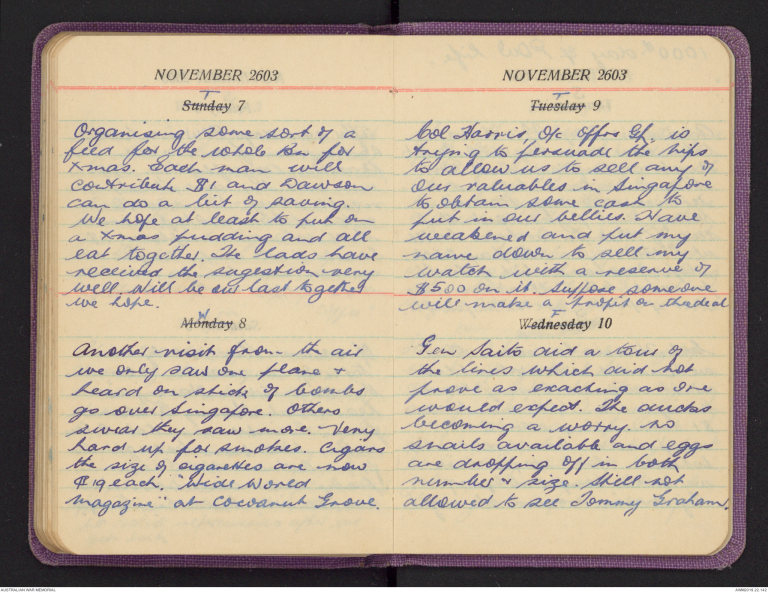 NOVEMBER 2603
T
Sunday 7
Organising some sort of a
feed for the whole Bn for
Xmas. Each man will
contribute $1 and Dawson
can do a bit of saving.
We hope at least to put on
a Xmas pudding and all
eat together. The lads have
received the sugestion very
well. Will be our last together
we hope.
W
Monday 8
Another visit from the air
we only saw one plane +
heard on stick of bombs
go over Singapore. Others
swear they saw more. Very
hard up for smokes. Cigars
the size of cigarettes are now
$19 each. "Wide World
Magazine" at Cocoanut Grove.
NOVEMBER 2603
T
Tuesday 9
Col Harris, O/c Offrs Gp. is
trying to persuade the Nips
to allow us to sell any of
our valuables in Singapore
to obtain some cash to
put in our bellies. Have
weakened and put my
name down to sell my
watch with a reserve of
$500 on it. Suppose someone
will make a profit on the deal
F
Wednesday 10
Gen Saito did a tour of
the lines which did not
prove as exacting as one
would expect. The ducks
becoming a worry. no
snails available and eggs
are dropping off in both
number + size. Still not
allowed to see Tommy Graham.
AUSTRALIAN WAR MEMORIAL
AWM2019.22.142